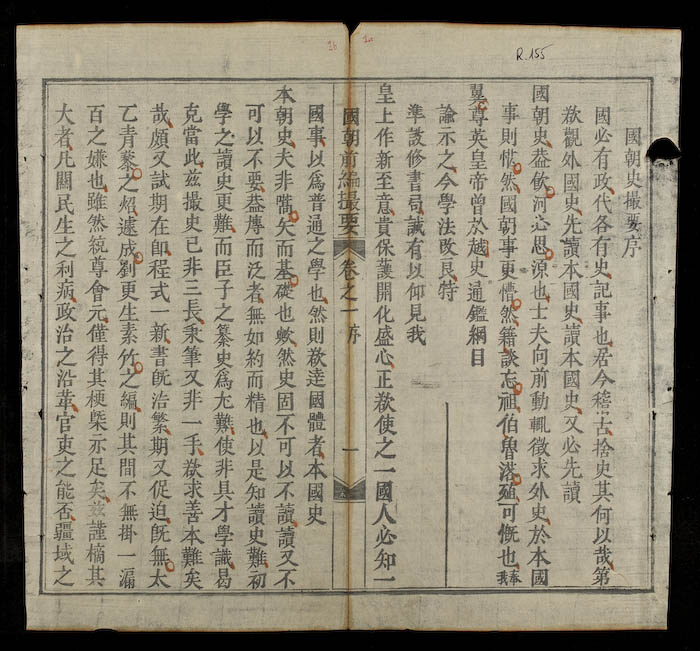 R.155
1a
1b
國朝史撮要序
國必有政代各有史記事也居今稽古捨史其何以哉第
欲觀外國史先讀本國史讀本國史又必先讀
國朝史葢飲河必思源也士夫向前動輒徵求外史於本國
事則惛然國朝事更懵然籍談忘祖伯魯落殖可慨也奉我
翼尊英皇帝曾於越史通鑑綱目
諭示之今學法改良特
準設修書局誠有以仰見我
皇上作新至意貴保護開化盛心正欲使之一國人必知一
國朝前編撮要 卷之一 序 一
國事以爲普通之學也然則欲達國體者本國史
本朝史夫非嚆矢而基礎也歟然史固不可以不讀讀又不
可以不要葢博而泛者無如約而精也以是知讀史難初
學之讀史更難而臣子之纂史爲尤難使非具才學識曷
克當此玆撮史已非三長秉筆又非一手欲求善本難矣
哉頗又試期在卽程式一新書旣浩繁期又促迫旣無太
乙青藜之炤速成劉更生素竹之編則其間不無掛一漏
百之嫌也雖然統尊會元僅得其梗槩亦足矣玆謹摘其
大者凡關民生之利病政治之沿革官吏之能否疆域之